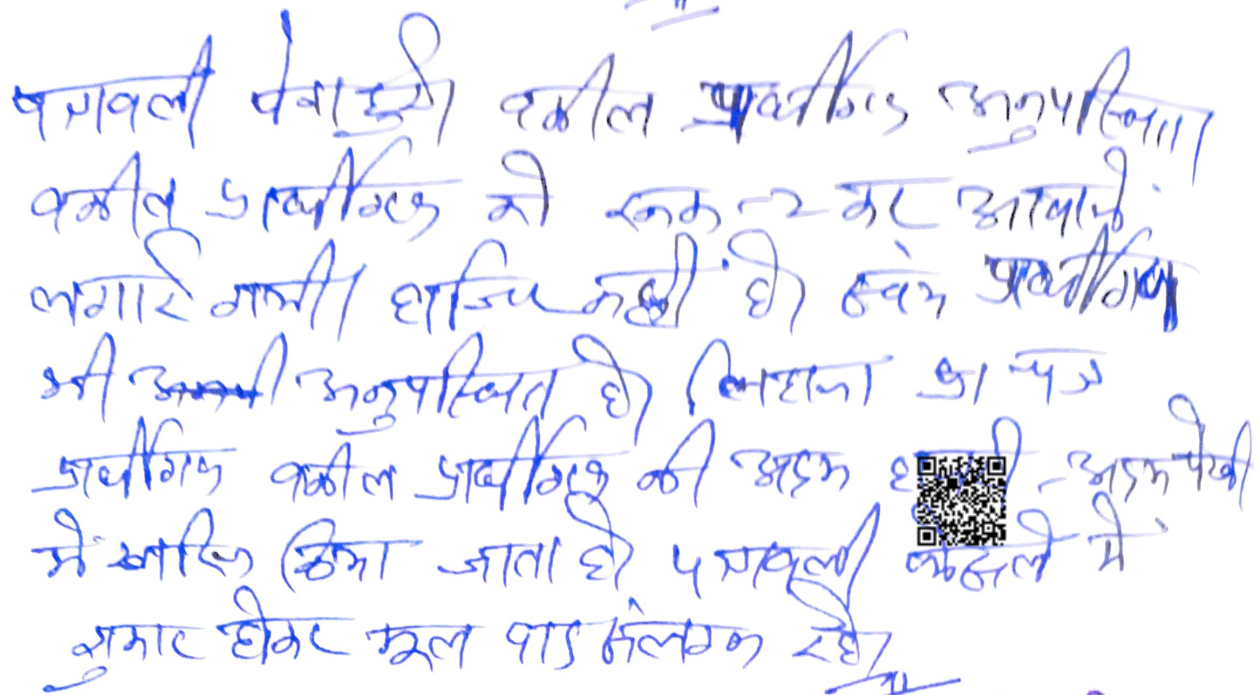 पत्रावली पेश हुई। वकील प्रार्थीगण अनुपस्थित।
वकील प्रार्थीगण को रूक-2 कर आवाजें
लगाई गयी। हाजिर नहीं है। स्वंय प्रार्थीगण
भी अनुपस्थित है। लिहाजा प्रा पत्र
प्रार्थीगण वकील प्रार्थीगण की अदम अदम पैरवी
में खारिज किया जाता है। पत्रावली फैसले में
शुमार होकर मूल वाद संलग्न रहे।